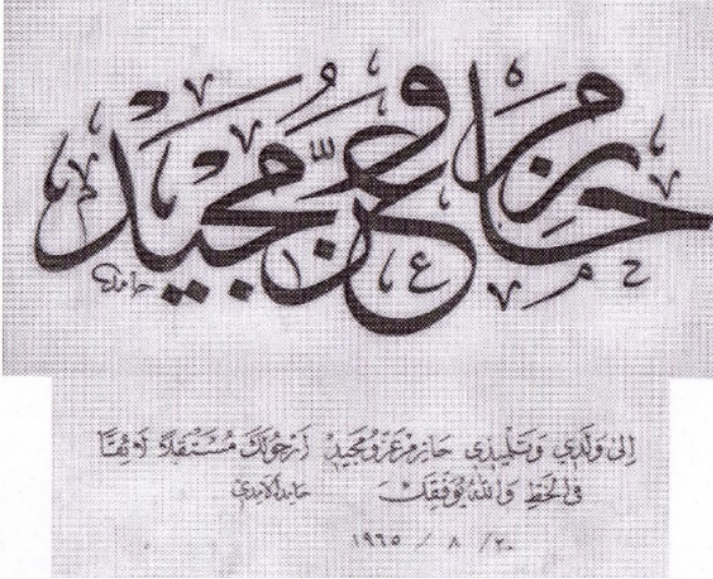 حازم عزّو مجيد
حامد
إلى ولدي وتلميذي حازم عزو مجيد أرجو لك مستقبلاً لائقاً
في الخط والله يوفقك حامد الآمدي
٢٠ / ٨ / ١٩٦٥